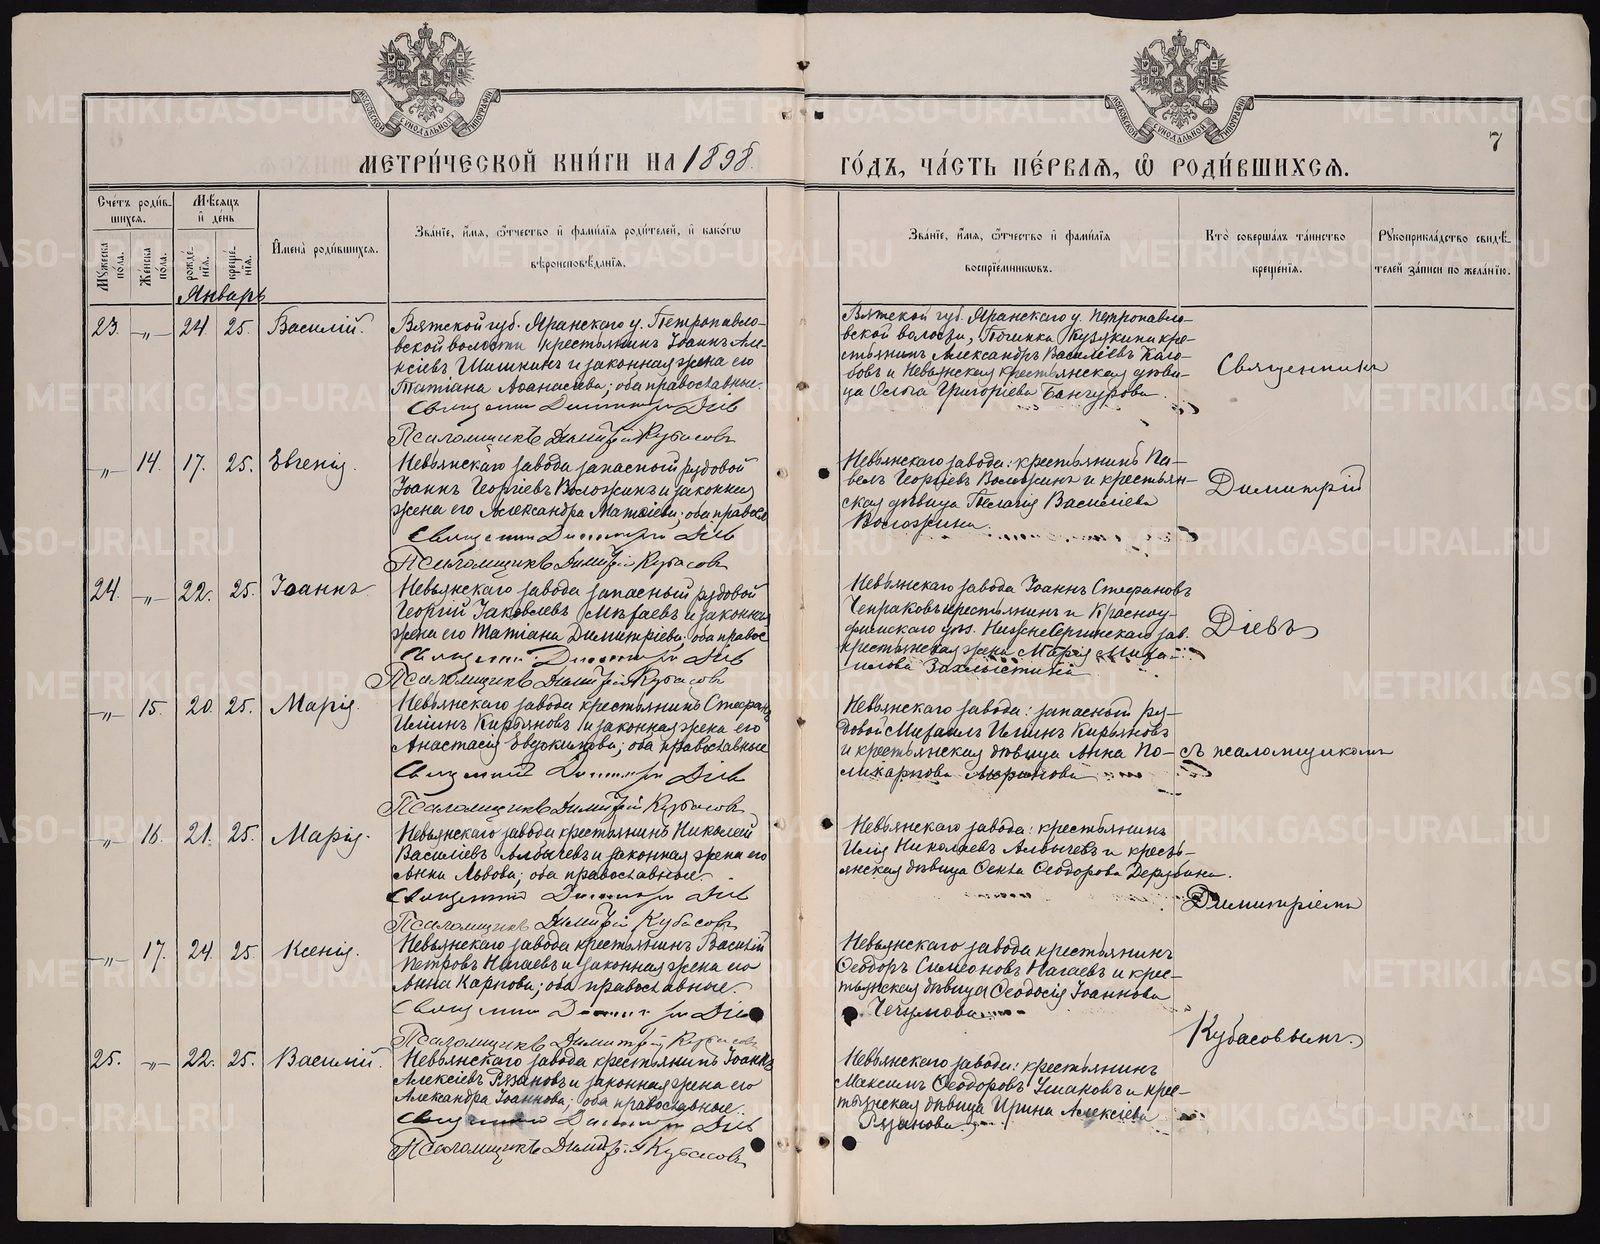 МЕТРИ́ЧЕСКОЙ КНИ́ГИ НА 1898.
ГО́ДЪ, ЧА́СТЬ ПЕ́РВАѦ, Ѡ҆ РОДИ́ВШИХСѦ.
7
Сче́тъ роди́в-
шихсѧ.
Мꙋ́жеска по́ла.
Же́нска по́ла.
Мѣ́сѧцъ и҆ де́нь
рожде́-
нїѧ.
креще́-
нїѧ.
И҆мена̀ роди́вшихсѧ.
Зва́нїе, и҆́мѧ, ѻ҆́тчество и҆ фами́лїѧ роди́телей, и҆ како́гѡ
вѣроисповѣ́данїѧ.
Зва́нїе, и҆́мѧ, ѻ҆́тчество и҆ фами́лїѧ
воспрїе́мникѡвъ.
Кто̀ соверша́лъ та́инство
креще́нїѧ.
Рꙋкоприкла́дство свидѣ́-
телей за́писи по жела́нїю.
Январь
23. —„— 24. 25. Василій.
Вятской губ. Яранскаго у. Петропавло-
вской волости крестьянинъ Іоаннъ Але-
ксіевъ Шишкинъ и законная жена его
Татіана Аѳанасіева; оба православные.
Священникъ Димитрій Діевъ
Псаломщикъ Димитрій Кубасовъ
Вятской губ. Яранскаго у. Петропавло-
вской волости, Починка Кузякина кре-
стьянинъ Александръ Василіевъ
и Невьянская крестьянская дѣви-
ца Ольга Григоріева
Священникъ
—„— 14. 17. 25. Евгенія.
Невьянскаго завода запасной рядовой
Іоаннъ Георгіевъ Воложинъ и законная
жена его Александра Матѳіева; оба правосл
Священникъ Димитрій Діевъ
Псаломщикъ Димитрій Кубасовъ
Невьянскаго завода: крестьянинъ Па-
велъ Георгіевъ Воложинъ и крестьян-
ская дѣвица Пелагія Василіева
Воложина.
Димитрій
24. —„— 22. 25. Іоаннъ
Невьянскаго завода запасный рядовой
Георгій Іаковлевъ и законная
жена его Татіана Димитріева; оба правос
Священникъ Димитрій Діевъ
Псаломщикъ Димитрій Кубасовъ
Невьянскаго завода Іоаннъ Стефановъ
Чепраковъ крестьянинъ и Красноу-
фимскаго уѣз. НижнеСергинскаго зав.
крестьянская жена Марія Миха-
илова Захлыстина
Діевъ
—„— 15. 20. 25. Марія.
Невьянскаго завода крестьянинъ Стефанъ
Иліинъ Кирьяновъ и законная жена его
Анастасія; оба православные
Священникъ Димитрій Діевъ
Псаломщикъ Димитрій Кубасовъ
Невьянскаго завода: запасной ря-
довой Михаилъ Иліинъ Кирьяновъ
и крестьянская дѣвица Анна По-
ликарпова
съ псаломщикомъ
—„— 16. 21. 25. Марія.
Невьянскаго завода крестьянинъ Николай
Василіевъ Алвычевъ и законная жена его
Анна Львова; оба православные.
Священникъ Димитрій Діевъ
Псаломщикъ Димитрій Кубасовъ
Невьянскаго завода: крестьянинъ
Илія Николаевъ Алвычевъ и кресть-
янская дѣвица Ѳекла Ѳеодорова Дерябина.
Димитріемъ
—„— 17. 24. 25. Ксенія.
Невьянскаго завода крестьянинъ Василій
Петровъ Нагаевъ и законная жена его
Анна Карпова; оба православные.
Священникъ Димитрій Діевъ
Псаломщикъ Димитрій Кубасовъ
Невьянскаго завода крестьянинъ
Ѳеодоръ Симеоновъ Нагаевъ и крес-
тьянская дѣвица Ѳеодосія Іоаннова
Чечулова
Кубасовымъ.
25. —„— 22. 25. Василій.
Невьянскаго завода крестьянинъ Іоаннъ
Алексіевъ Рязановъ и законная жена его
Александра Іоаннова; оба православные.
Священникъ Димитрій Діевъ
Псаломщикъ Димитрій Кубасовъ
Невьянскаго завода: крестьянинъ
Максимъ Ѳеодоровъ Ушаковъ и крес-
тьянская дѣвица Ирина Алексіева
Рязанова.
METRIKI.GASO-URAL.RU